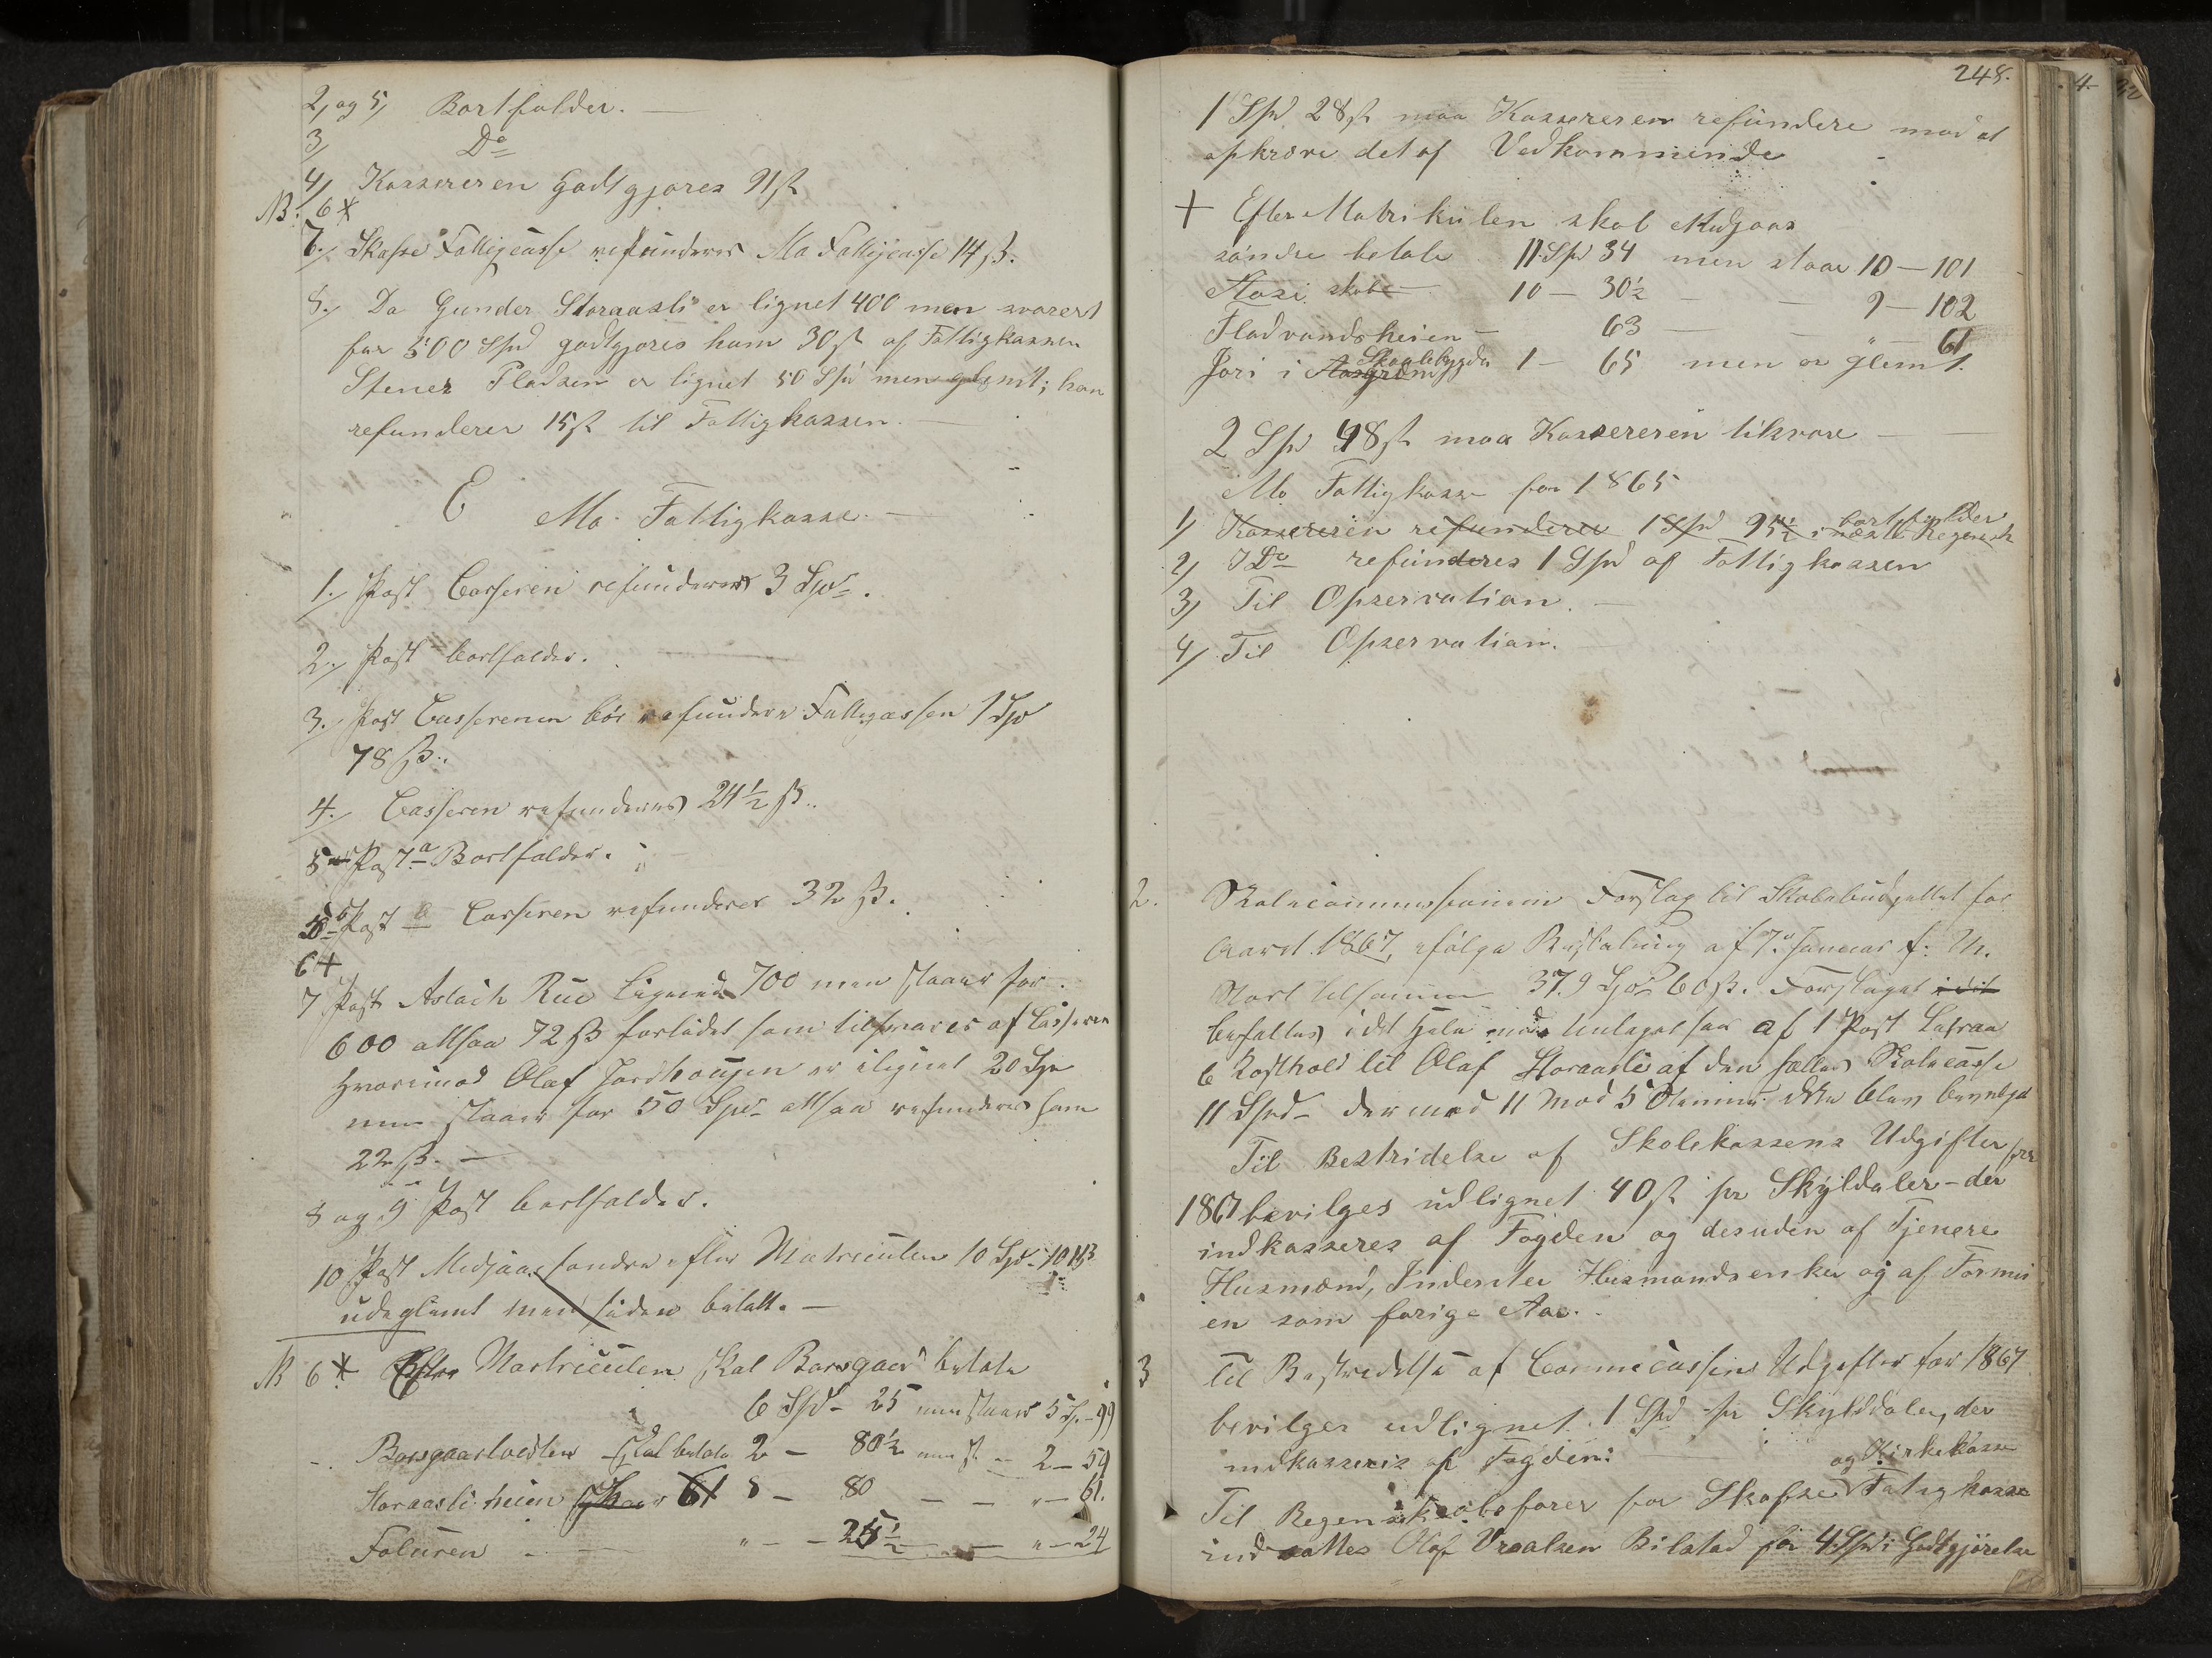 2, og 5, Bortfalder. —
3, Do
4, Kassereren Godtgjøres 91 ß
NB. 6 +
7., Skafse Fattigcasse refunderes Mo Fattigcasse 14 ß.
8., Da Gunder Storaasli er lignet 400 men svarert
for 500 Spd godtgjøres ham 30 ß af Fattigkassen
Stener Pladsen er lignet 50 Spd men glemt; han
refunderer 15 ß til Fattigkassen. —
E Mo Fattigkasse. —
1., Post Casseren refunderes 3 Spd.
2., Post bortfalder.
3., Post Casseren bør refundere Fattigcassen 1 Spd
78 ß.
4., Casseren refunderes 24½ ß.
5 Post a Bortfalder.
Post b Casseren refunderer 32 ß.
6 +
7 Post Aslach Rue Lignet 700 men staaer for
600 altsaa 72 ß forlidet som tilsvares af Casseren
hvorimod Olaf Jordhougen er ilignet 20 Spd
men staaer for 50 Spd altsaa refunderes ham
22 ß. —
8 og 9 Post bortfalder.
10 Post Midjaas søndre efter Matriculen 10 Spd
udeglemt men siden betalt. —
NB 6 + Efter Matriculen skal Borsgaar betale
6 Spd - 25 men staaer 5 Sp - 99
Borsgaar skal betale 2 — 80½ men st — 2 — 59
Storaasliheien 80 — — " — 61.
Foluren — " — — 25½ — " — 24
248.
1 Spd 28 ß maa Kassereren refundere mod at
opkræve det af Vedkommende
+ Efter Matrikulen skal Midjaas
søndre betale 11 Spd 34 men staar 10 — 101
10 — 30½ — — 9 — 102
Fladvandsheien — 63 — — " 61
Jori i Skaalebygda 1 — 65 men er glemt.
2 Spd 48 ß maa Kassereren tilsvare —
Mo Fattigkasse for 1865
1, Kassereren refunderer 1 Spd bortfalder
2, Do refunderes 1 Spd af Fattigkassen
3, Til Opservation. —
4, Til Opservation. —
2. Skolecommissionens Forslag til Skolebudgettet for
Aaret 1867, ifølge Beslutning af 7de Januar f. A.
Stort tilsammen 379 Spd 60 ß. Forslaget
befattes i det Hele med Undtagelse af 1 Post Litraa
6 Kosthold til Olaf Storaasli af den fælles Skolecasse
11 Spd — der med 11 mod 5 Stemmer ikke blev bevilget
Til Bestridelse af Skolekassens Udgifter for
1867 bevilges udlignet 40 ß pr Skylddaler — der
indkasseres af Fogden og desuden af Tjenere
Husmænd, Inderster Husmandsenker og af Formu
en som forige Aar. —
3 Til Bestridelse af Communecassens Udgifter for 1867
bevilges udlignet 1 Spd pr Skylddaler, der
indkasseres af Fogden:
og Kirkekasse
Til Regenskabsfører for Skafse Fatigkasse
indsattes Olaf Vraalsen Bilstad for 4 Spd i Godtgjørelse